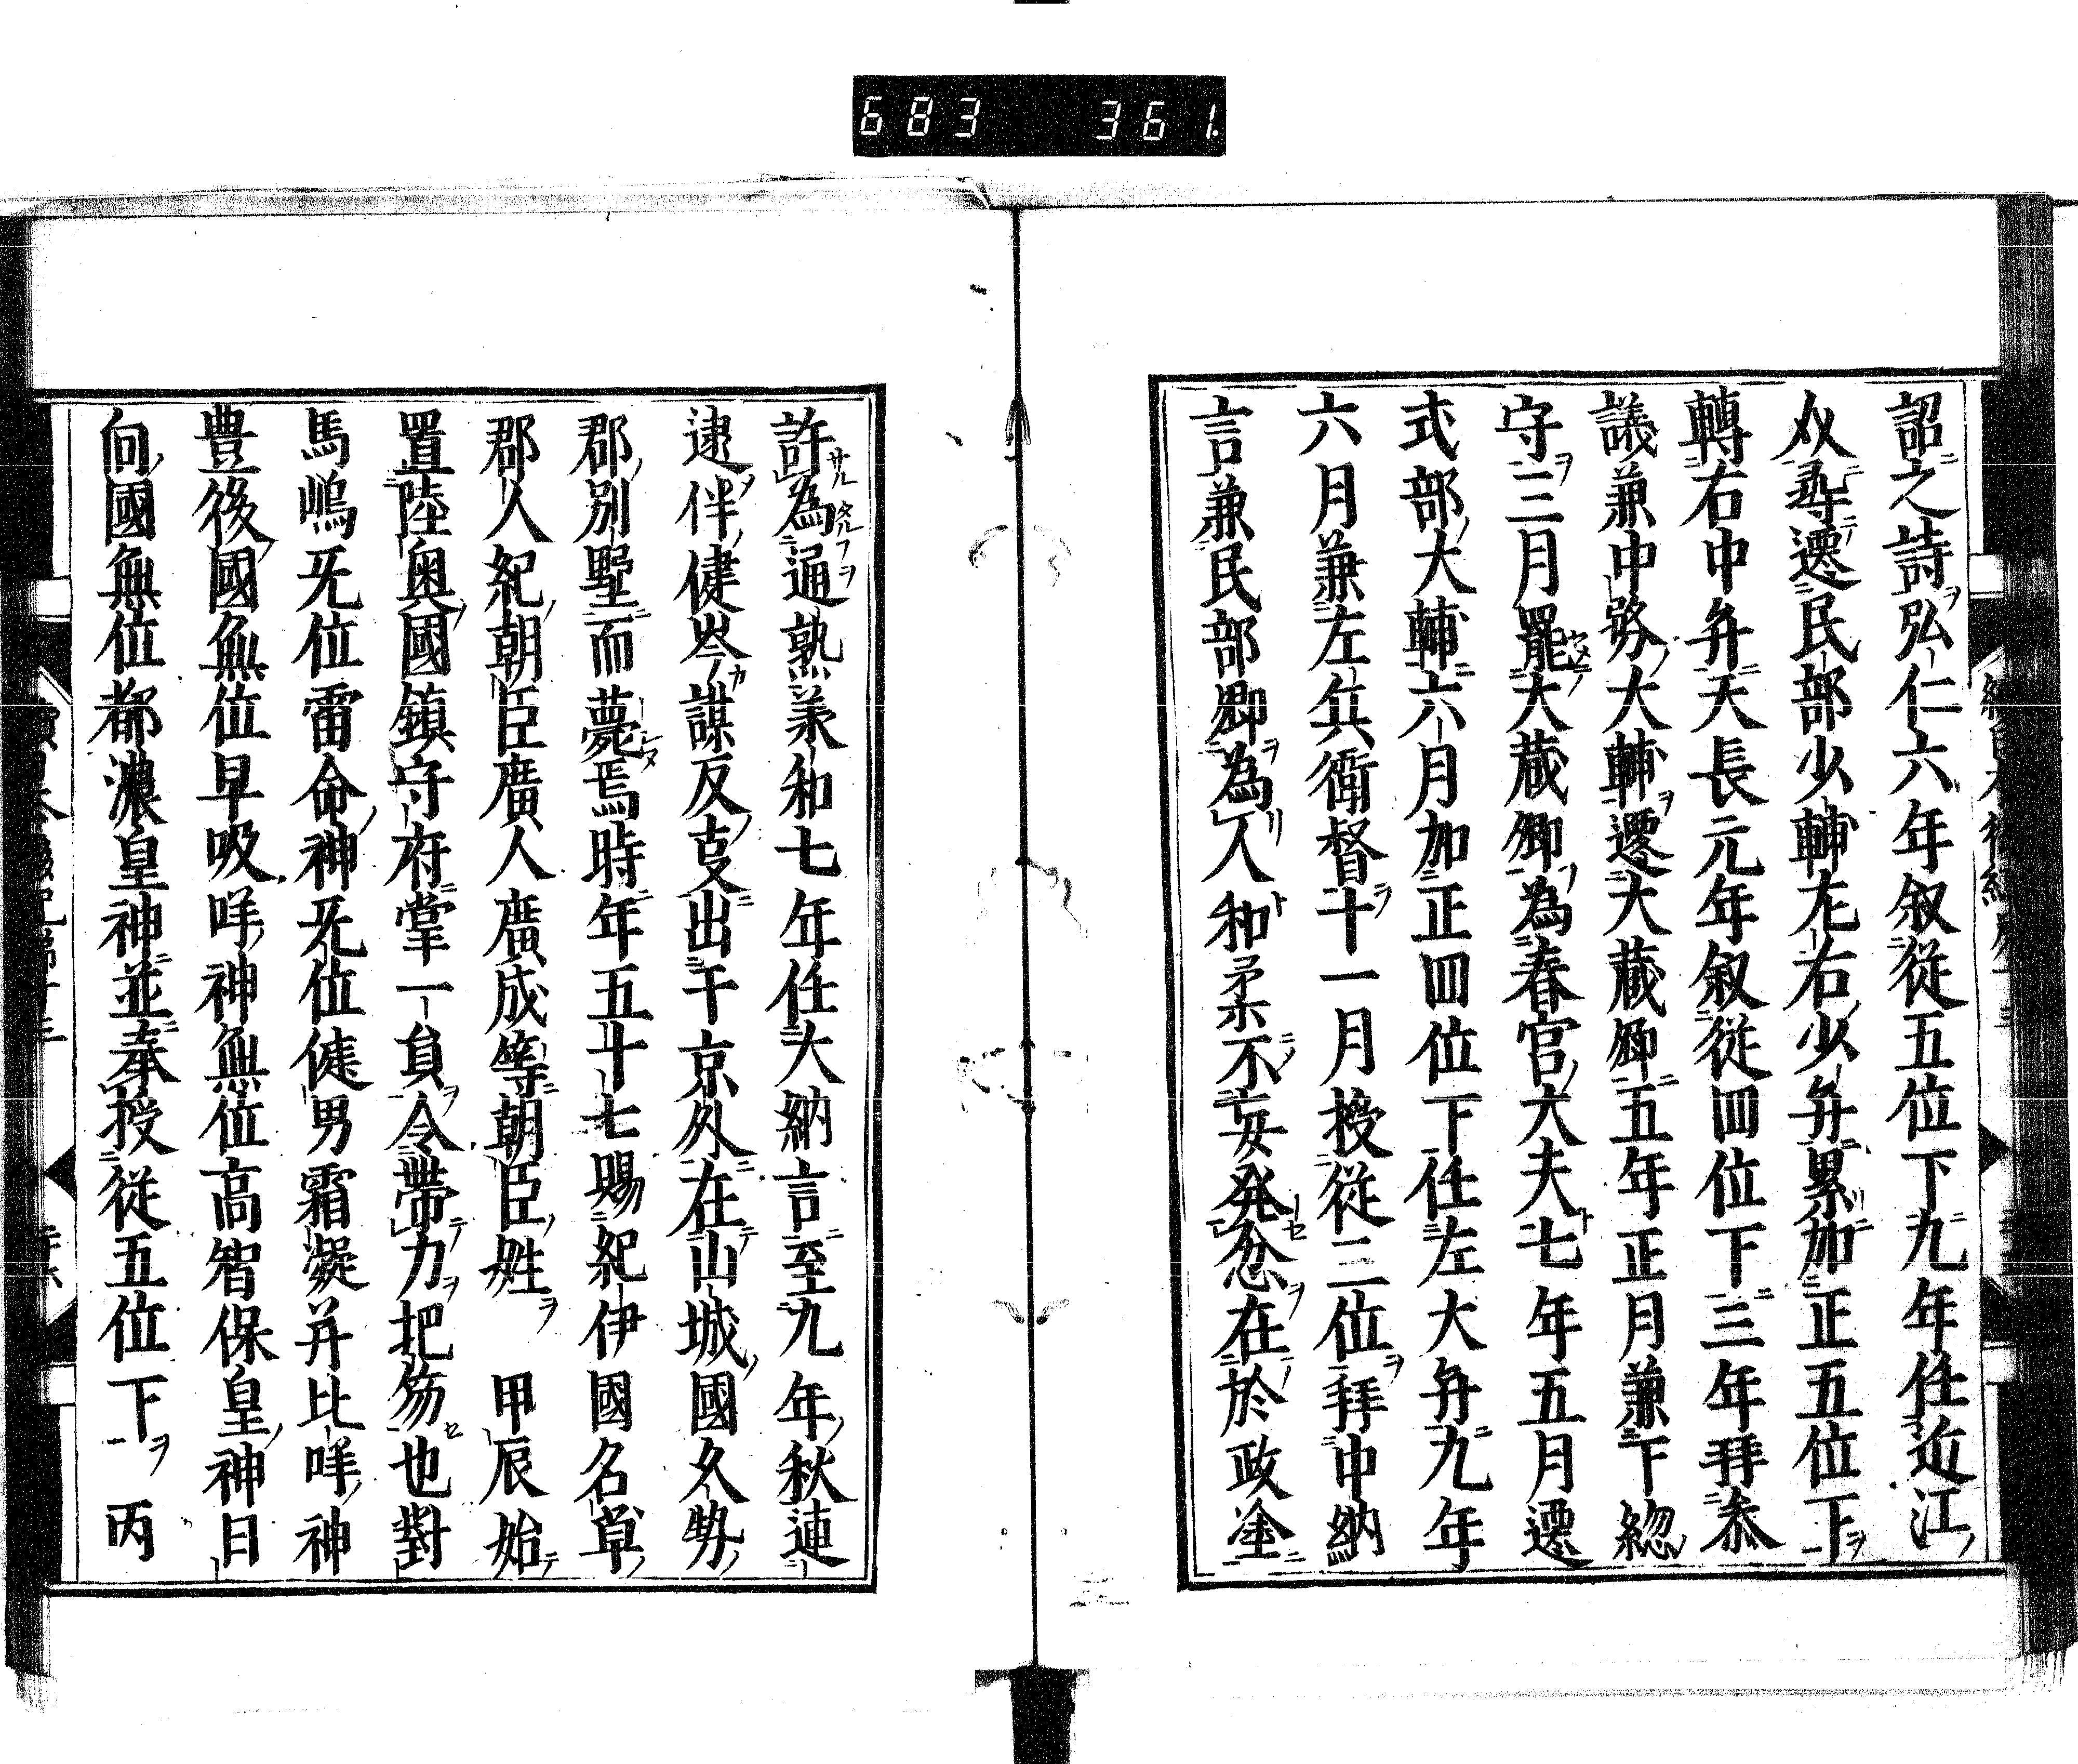 683 361
詔之詩弘仁六年叙從五位下九年任近江
尋遷民部少輔左右少弁累加正五位下
轉右中弁天長元年叙從四位下三年拜叅
議兼中務大輔遷大蔵卿五年正月兼下総
守三月罷大蔵卿為春宮大夫七年五月遷
式部大輔六月加正四位下任左大弁九年
六月兼左兵衛督十一月授從三位拜中納
言兼民部卿為人和柔不妄発忿在於政塗
許為通熟美和七年任大納言至九年秋連
逮伴健岑謀反支出干京外在山城國久勢
郡別墅而薨焉時年五十七賜紀伊國名草
郡人紀朝臣廣人廣成等朝臣姓 甲辰始
置陸奥國鎮守府掌一貟令帶力把笏也對
馬嶋无位雷命神无位健男霜凝并比咩神
豊後國無位早吸咩神無位高智保皇神日
向國無位都濃皇神並奉授從五位下 丙